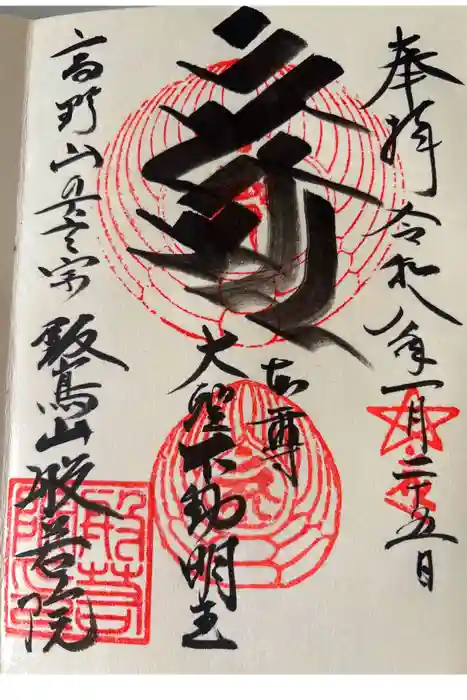 奉拝 令和八年一月二十五日
本尊
大聖不動明王
高野山真言宗 飯高山般若院